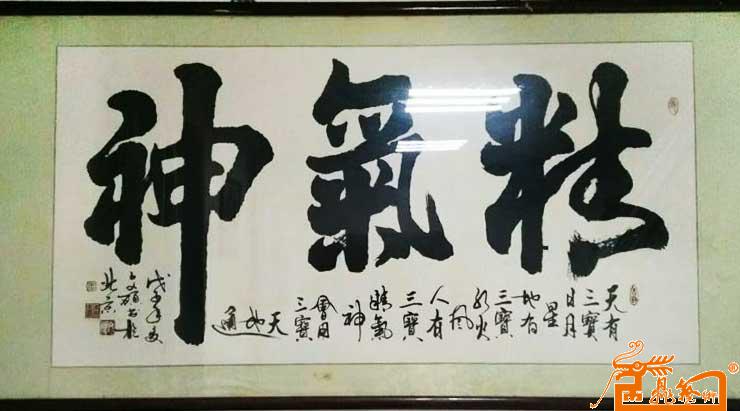 精氣神
天有
三寶
日月
星
地有
三寶
水火
風
人有
三寶
精氣
神
會用
三寶
天
地
通
書於
北京